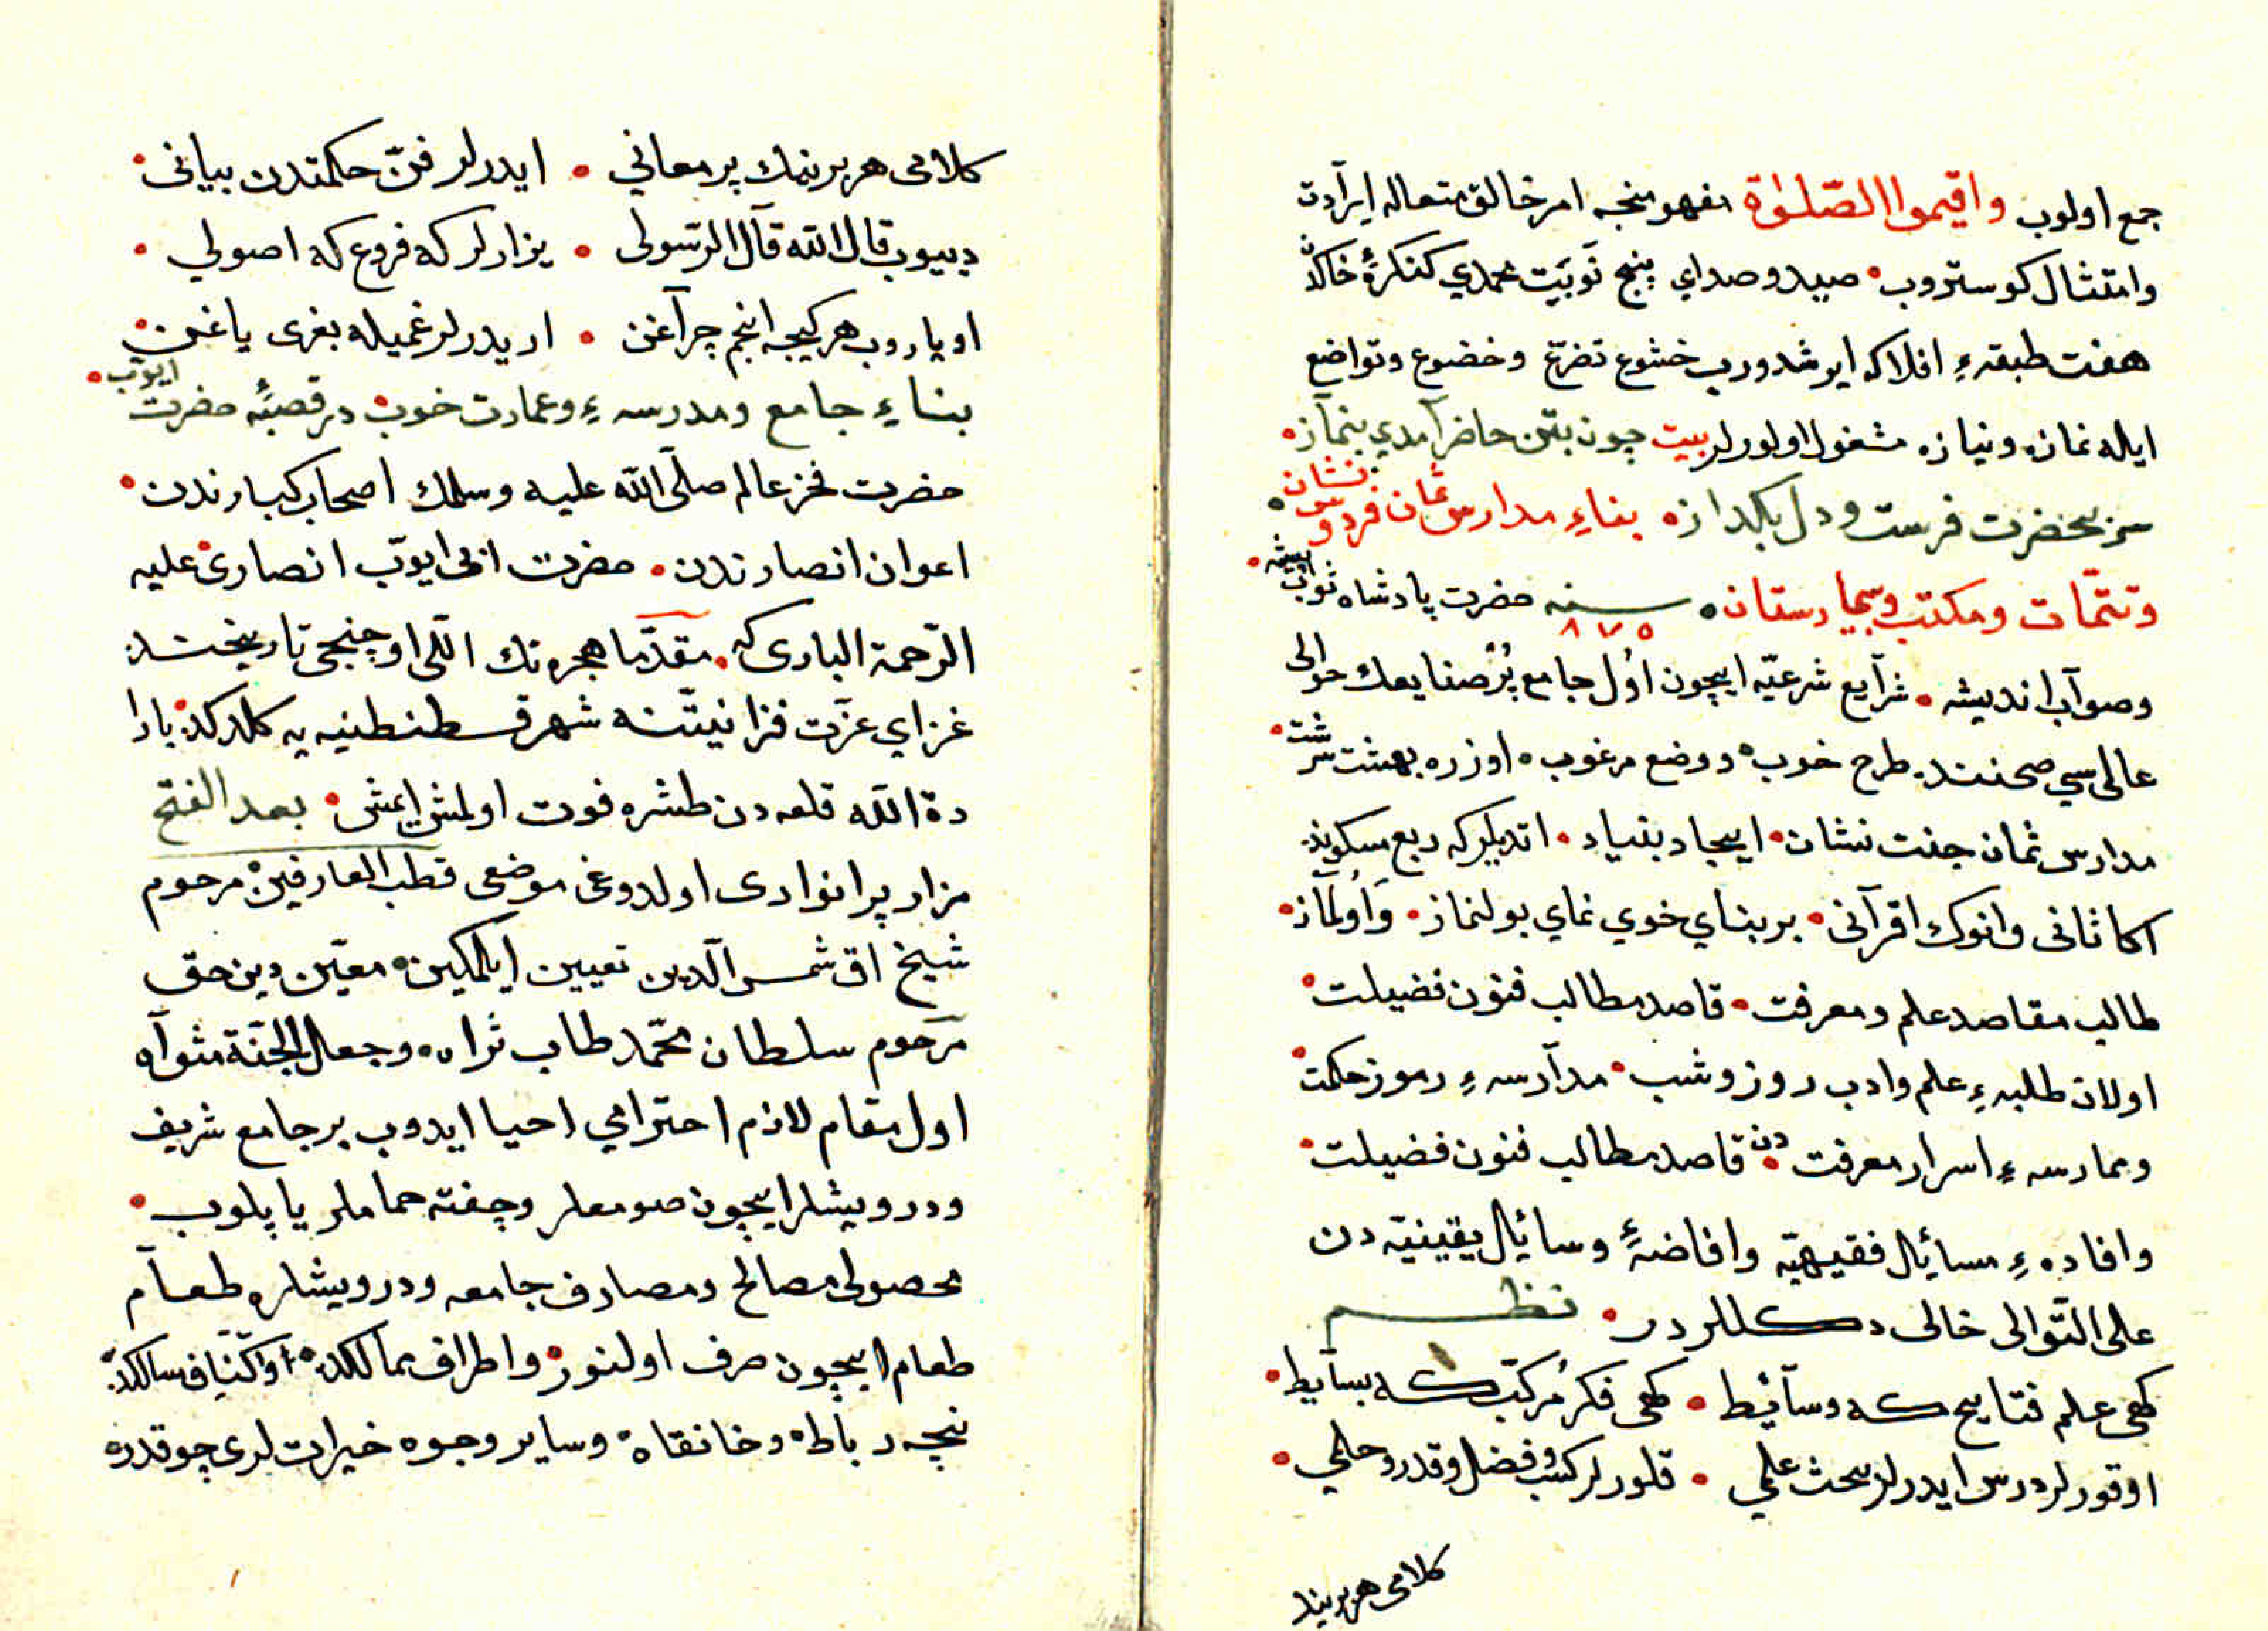 جمع اولوب واقيموا الصّلوٰة مفهومنجه امر خالق متعاله ايرآدت
وامتثال كوستروب • صيد و صداي پنج نَوبَت محمدي كنكرهٔ خاكدن
هفت طبقهءِ افلاكه ايرشدورب خشوع تضرّع و خضوع وتواضع
ايله نمازه ونيازه مشغول اولورلر بيت چون بتن حاضر آمدي بنمآز •
سر بحضرت فرست ودل بكداز • بناءِ مدارس ثمان فردوس نشان •
وتتمّات ومكتب وبيمارستان • سنه ٨٧٥ حضرت پادشاه ثواب پيشه •
وصوآب انديشه • شرآيع شرعيّه ايچون اوُل جامع پُرصنايعك حوالى
عالى سي صحننده طرح خوب • ووضع مرغوب • اوزره بهشت سرشت •
مدارس ثمان جنت نشان • ايجاد بنياد • اتديلركه ربع مسكونده
اكا ثانى وانوك اقرآنى • بر بناي خوي نماي بولنماز • وَاولمآز •
طالب مقاصد علم ومعرفت • قاصد مطالب فنون فضيلت •
اولان طلبهءِ علم وادب روز وشب • مدآرسهءِ رموز حكمت •
وممارسهءِ اسرار معرفت دن • قاصد مطالب فنون فضيلت •
وافادهءِ مسائل فقيهيّه وافاضهءِٔ وسائل يقينيّه دن
على التّوالى خالى دكللردر • نظم
كهى علم نتايج كه وسآئط • كهى فكر مُركّب كه بسآيط •
اوقورلر درس ايدرلر بحث علمي • قلورلر كسب وفضل وقدر وحلمي •
كلامى هر برينك
كلامى هر برينك پر معاني • ايدرلر فنّ حكمتدن بيانى •
ديیوب قال الله قآل الرّسولى • يزارلر كه فروع كه اصولي •
اوياروب هر كيجه انجم چرآغن • اريدرلر غميله بغرى ياغن •
بناءِ جامع ومدرسهءِ وعمارت خوب • در قصبهٔ حضرت ايوب •
حضرت فخر عالم صلّى الله عليه وسلمك اصحاب كبارندن •
اعوان انصارندن • حضرت ابى ايوّب انصارى • عليه
الرّحمة البارى كه • مقدّما هجرتك اللى اوچنجى تاريخنده
غزاي عزّت فزا نيتّنه شهر قسطنطنيه يه كلدكده بارا
دة الله قلعه دن طشره فوت اولمش ايمش • بعد الفتح
مزار پر انوارى اولدوغى موضعى قطب العارفين • مرحوم
شيخ اق شمس الّدين تعيين ايلمكين • معيّن دين حق
مرحوم سلطان محمّد طاب ثراه • وجعل الجنّة مثوآه
اول مقام لازم احترامي احيا ايدوب بر جامع شريف
ودرويشلر ايچون صومعلر وچفته حماملر ياپلوب •
محصولى مصالح ومصارف جامعه ودرويشلره طعآم
طعام ايچون صرف اولنور • واطراف ممالكده • واكنَاف سالكده
نيچه رباط • وخانقاه • وساير وجوه خيرات لرى چوقدره